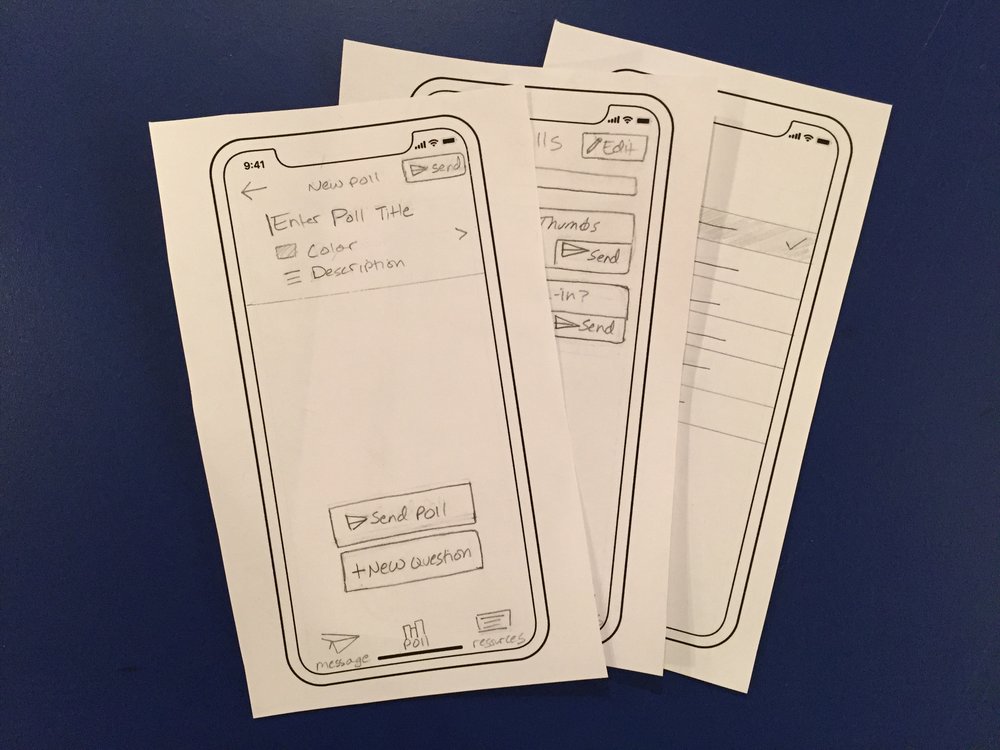 9:41
New Poll
Send
Enter Poll Title
Color
>
Description
Send Poll
+New Question
message
Poll
resources
lls
Edit
Thumbs
Send
-in?
Send